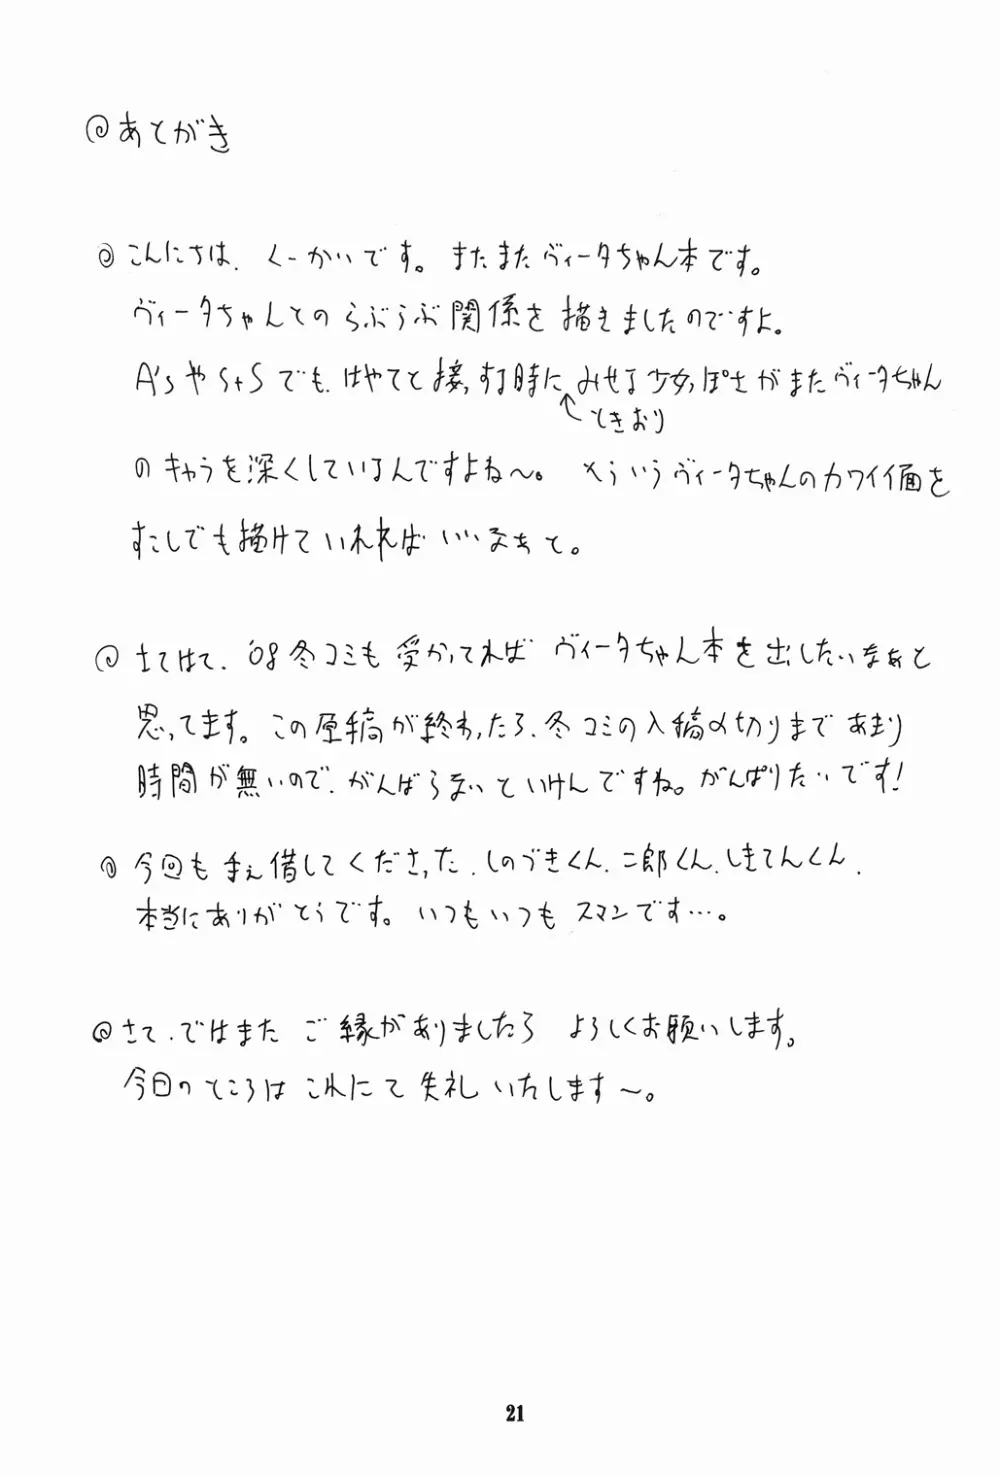 @あとがき
@こんにちは、くーかいです。またまたヴィータちゃん本です。
ヴィータちゃんとのらぶらぶ関係を描きましたのですよ。
A'sやStSでも、はやてと接っする時に みせる少女っぽさがまたヴィータちゃん
ときおり
のキャラを深くしているんですよね〜。そういうヴィータちゃんのカワイイ面を
すこしでも描けていれればいいなぁと。
@さてはて、'08冬コミも受かってればヴィータちゃん本を出したいなぁと
思ってます。この原稿が終わったら、冬コミの入稿〆切りまであまり
時間が無いので、がんばらないといけんですね。がんばりたいです!
@今回も手ぇ借してくださった、しのづきくん、二郎くん、しきてんくん、
本当にありがとうです。いつもいつもスマンです…。
@さて、ではまたご縁がありましたらよろしくお願いします。
今日のところはこれにて失礼いたします〜。
21